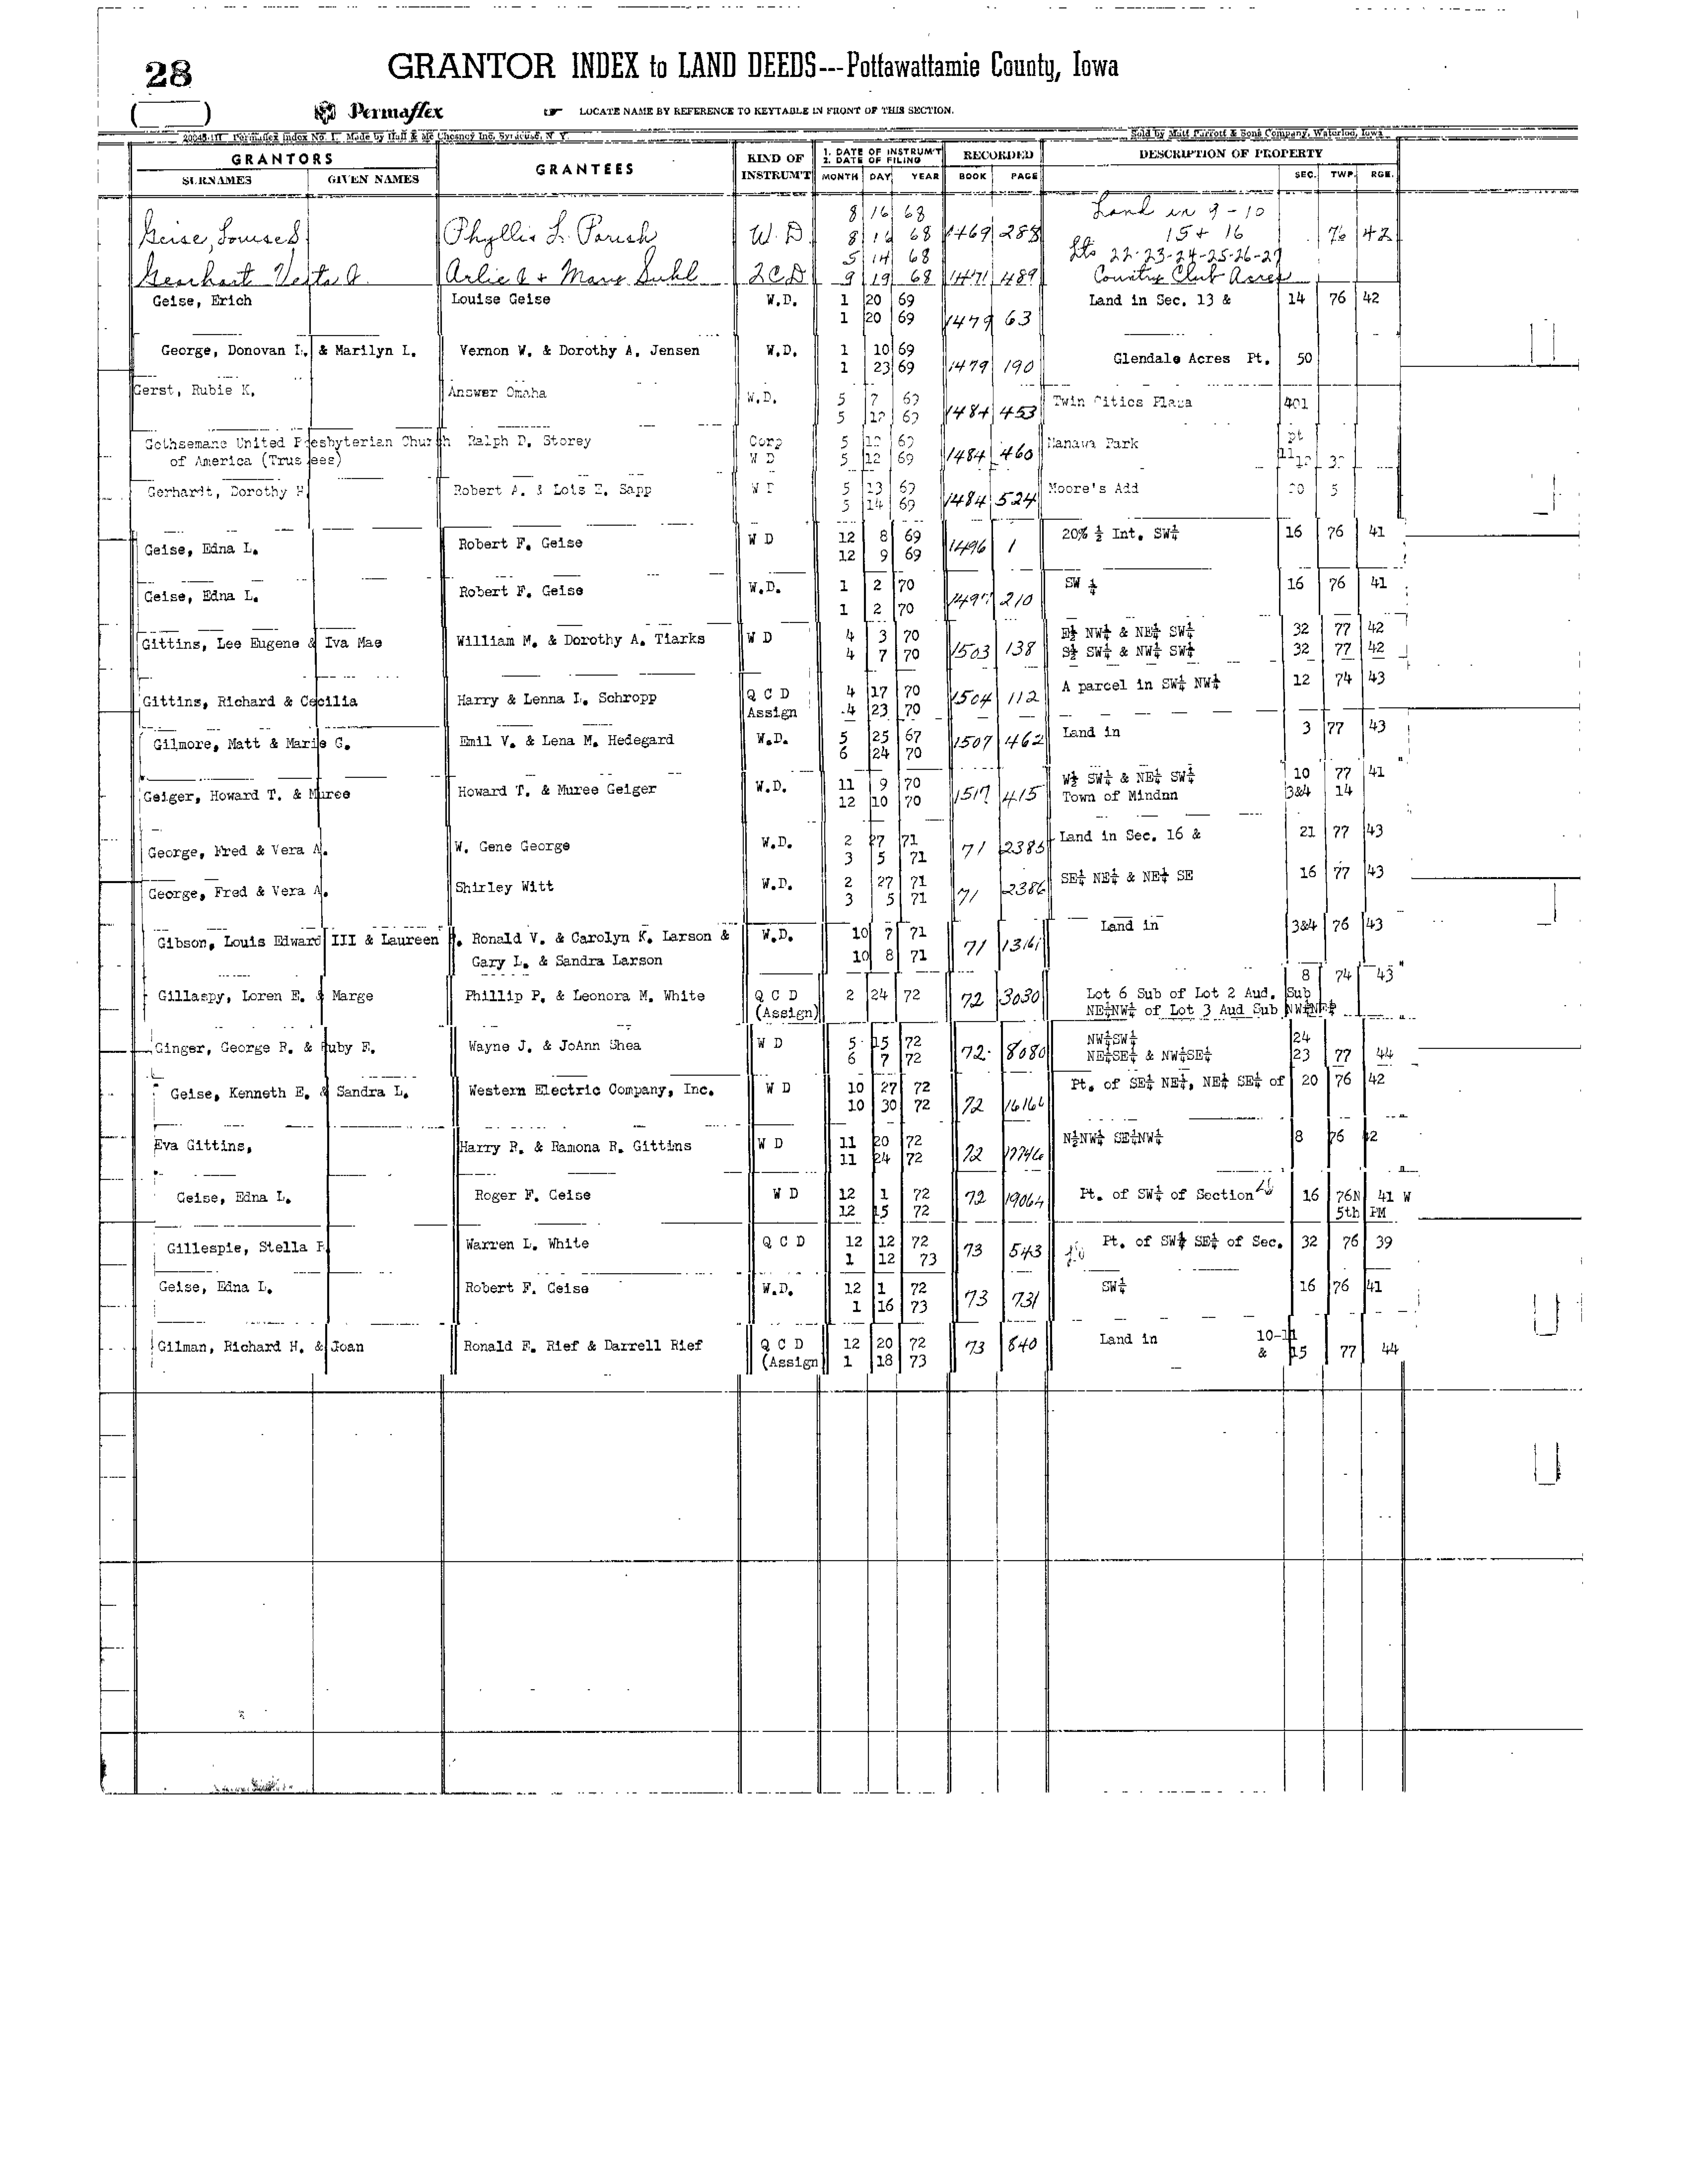 28
GRANTOR INDEX to LAND DEEDS---Pottawattamie County, Iowa
Permaflex ☞ LOCATE NAME BY REFERENCE TO KEYTABLE IN FRONT OF THIS SECTION.
Permaflex Index No. 1. Made by Hall & Mc Chesney Inc. Syracuse, N. Y. Sold by Matt Parrott & Sons Company, Waterloo, Iowa
GRANTORS GRANTEES KIND OF INSTRUM'T 1. DATE OF INSTRUM'T 2. DATE OF FILING RECORDED DESCRIPTION OF PROPERTY
SURNAMES GIVEN NAMES MONTH DAY YEAR BOOK PAGE SEC. TWP. RGE.
8 16 68 Land in 9-10
Geise, Louise S. Phyllis L. Parish W.D. 8 16 68 1469 288 15 + 16 76 42
5 14 68 Lts 22-23-24-25-26-27
Gearhart Vesta J. Arlie & + Mary Suhl 2CD 9 19 68 1471 489 Country Club Acres
Geise, Erich Louise Geise W.D. 1 20 69 Land in Sec. 13 & 14 76 42
1 20 69 1479 63
George, Donovan L. & Marilyn L. Vernon W. & Dorothy A. Jensen W.D. 1 10 69 Glendale Acres Pt. 50
1 23 69 1479 190
Gerst, Rubie K. Answer Omaha W.D. 5 7 69 Twin Cities Plaza 401
5 12 69 1484 453
Gethsemane United Presbyterian Church Ralph D. Storey Corp 5 12 69 Manawa Park pt
of America (Trustees) W D 5 12 69 1484 460
Gerhardt, Dorothy H. Robert A. & Lois E. Sapp W D 5 13 69 Moore's Add 5
5 14 69 1484 524
Geise, Edna L. Robert F. Geise W D 12 8 69 20% ½ Int. SW¼ 16 76 41
12 9 69 1496 1
Geise, Edna L. Robert F. Geise W.D. 1 2 70 SW ¼ 16 76 41
1 2 70 1497 210
Gittins, Lee Eugene & Iva Mae William M. & Dorothy A. Tiarks W D 4 3 70 E½ NW¼ & NE¼ SW¼ 32 77 42
4 7 70 1503 138 S½ SW¼ & NW¼ SW¼ 32 77 42
Gittins, Richard & Cecilia Harry & Lenna L. Schropp Q C D 4 17 70 A parcel in SW¼ NW¼ 12 74 43
Assign 4 23 70 1504 112
Gilmore, Matt & Marie G. Emil V. & Lena M. Hedegard W.D. 5 25 67 Land in 3 77 43
6 24 70 1507 462
Geiger, Howard T. & Muree Howard T. & Muree Geiger W.D. 11 9 70 W½ SW¼ & NE¼ SW¼ 10 77 41
12 10 70 1517 415 Town of Mindnn 3&4 14
George, Fred & Vera A. W. Gene George W.D. 2 27 71 Land in Sec. 16 & 21 77 43
3 5 71 71 2385
George, Fred & Vera A. Shirley Witt W.D. 2 27 71 SE¼ NE¼ & NE¼ SE 16 77 43
3 5 71 71 2386
Gibson, Louis Edward III & Laureen Ronald V. & Carolyn K. Larson & W.D. 10 7 71 Land in 3&4 76 43
Gary L. & Sandra Larson 10 8 71 71
8 74 43
Gillaspy, Loren E. & Marge Phillip P. & Leonora M. White Q C D 2 24 72 72 3030 Lot 6 Sub of Lot 2 Aud. Sub
(Assign) NE¼NW¼ of Lot 3 Aud Sub NW¼NE¼
Ginger, George R. & Ruby E. Wayne J. & JoAnn Shea W D 5 15 72 NW¼SW¼ 24
6 7 72 72 8080 NE¼SE¼ & NW¼SE¼ 23 77 44
Geise, Kenneth E. & Sandra L. Western Electric Company, Inc. W D 10 27 72 Pt. of SE¼ NE¼, NE¼ SE¼ of 20 76 42
10 30 72 72
Eva Gittins, Harry R. & Ramona R. Gittins W D 11 20 72 N½NW¼ SE¼NW¼ 8 76 42
11 24 72 72 17746
Geise, Edna L. Roger F. Geise W D 12 1 72 Pt. of SW¼ of Section 16 76N 41 W
12 15 72 72 19064 5th PM
Gillespie, Stella P. Warren L. White Q C D 12 12 72 Pt. of SW¼ SE¼ of Sec. 32 76 39
1 12 73 73 543
Geise, Edna L. Robert F. Geise W.D. 12 1 72 SW¼ 16 76 41
1 16 73 73 731
Gilman, Richard H. & Joan Ronald E. Rief & Darrell Rief Q C D 12 20 72 73 840 Land in 10-11
(Assign 1 18 73 & 15 77 44